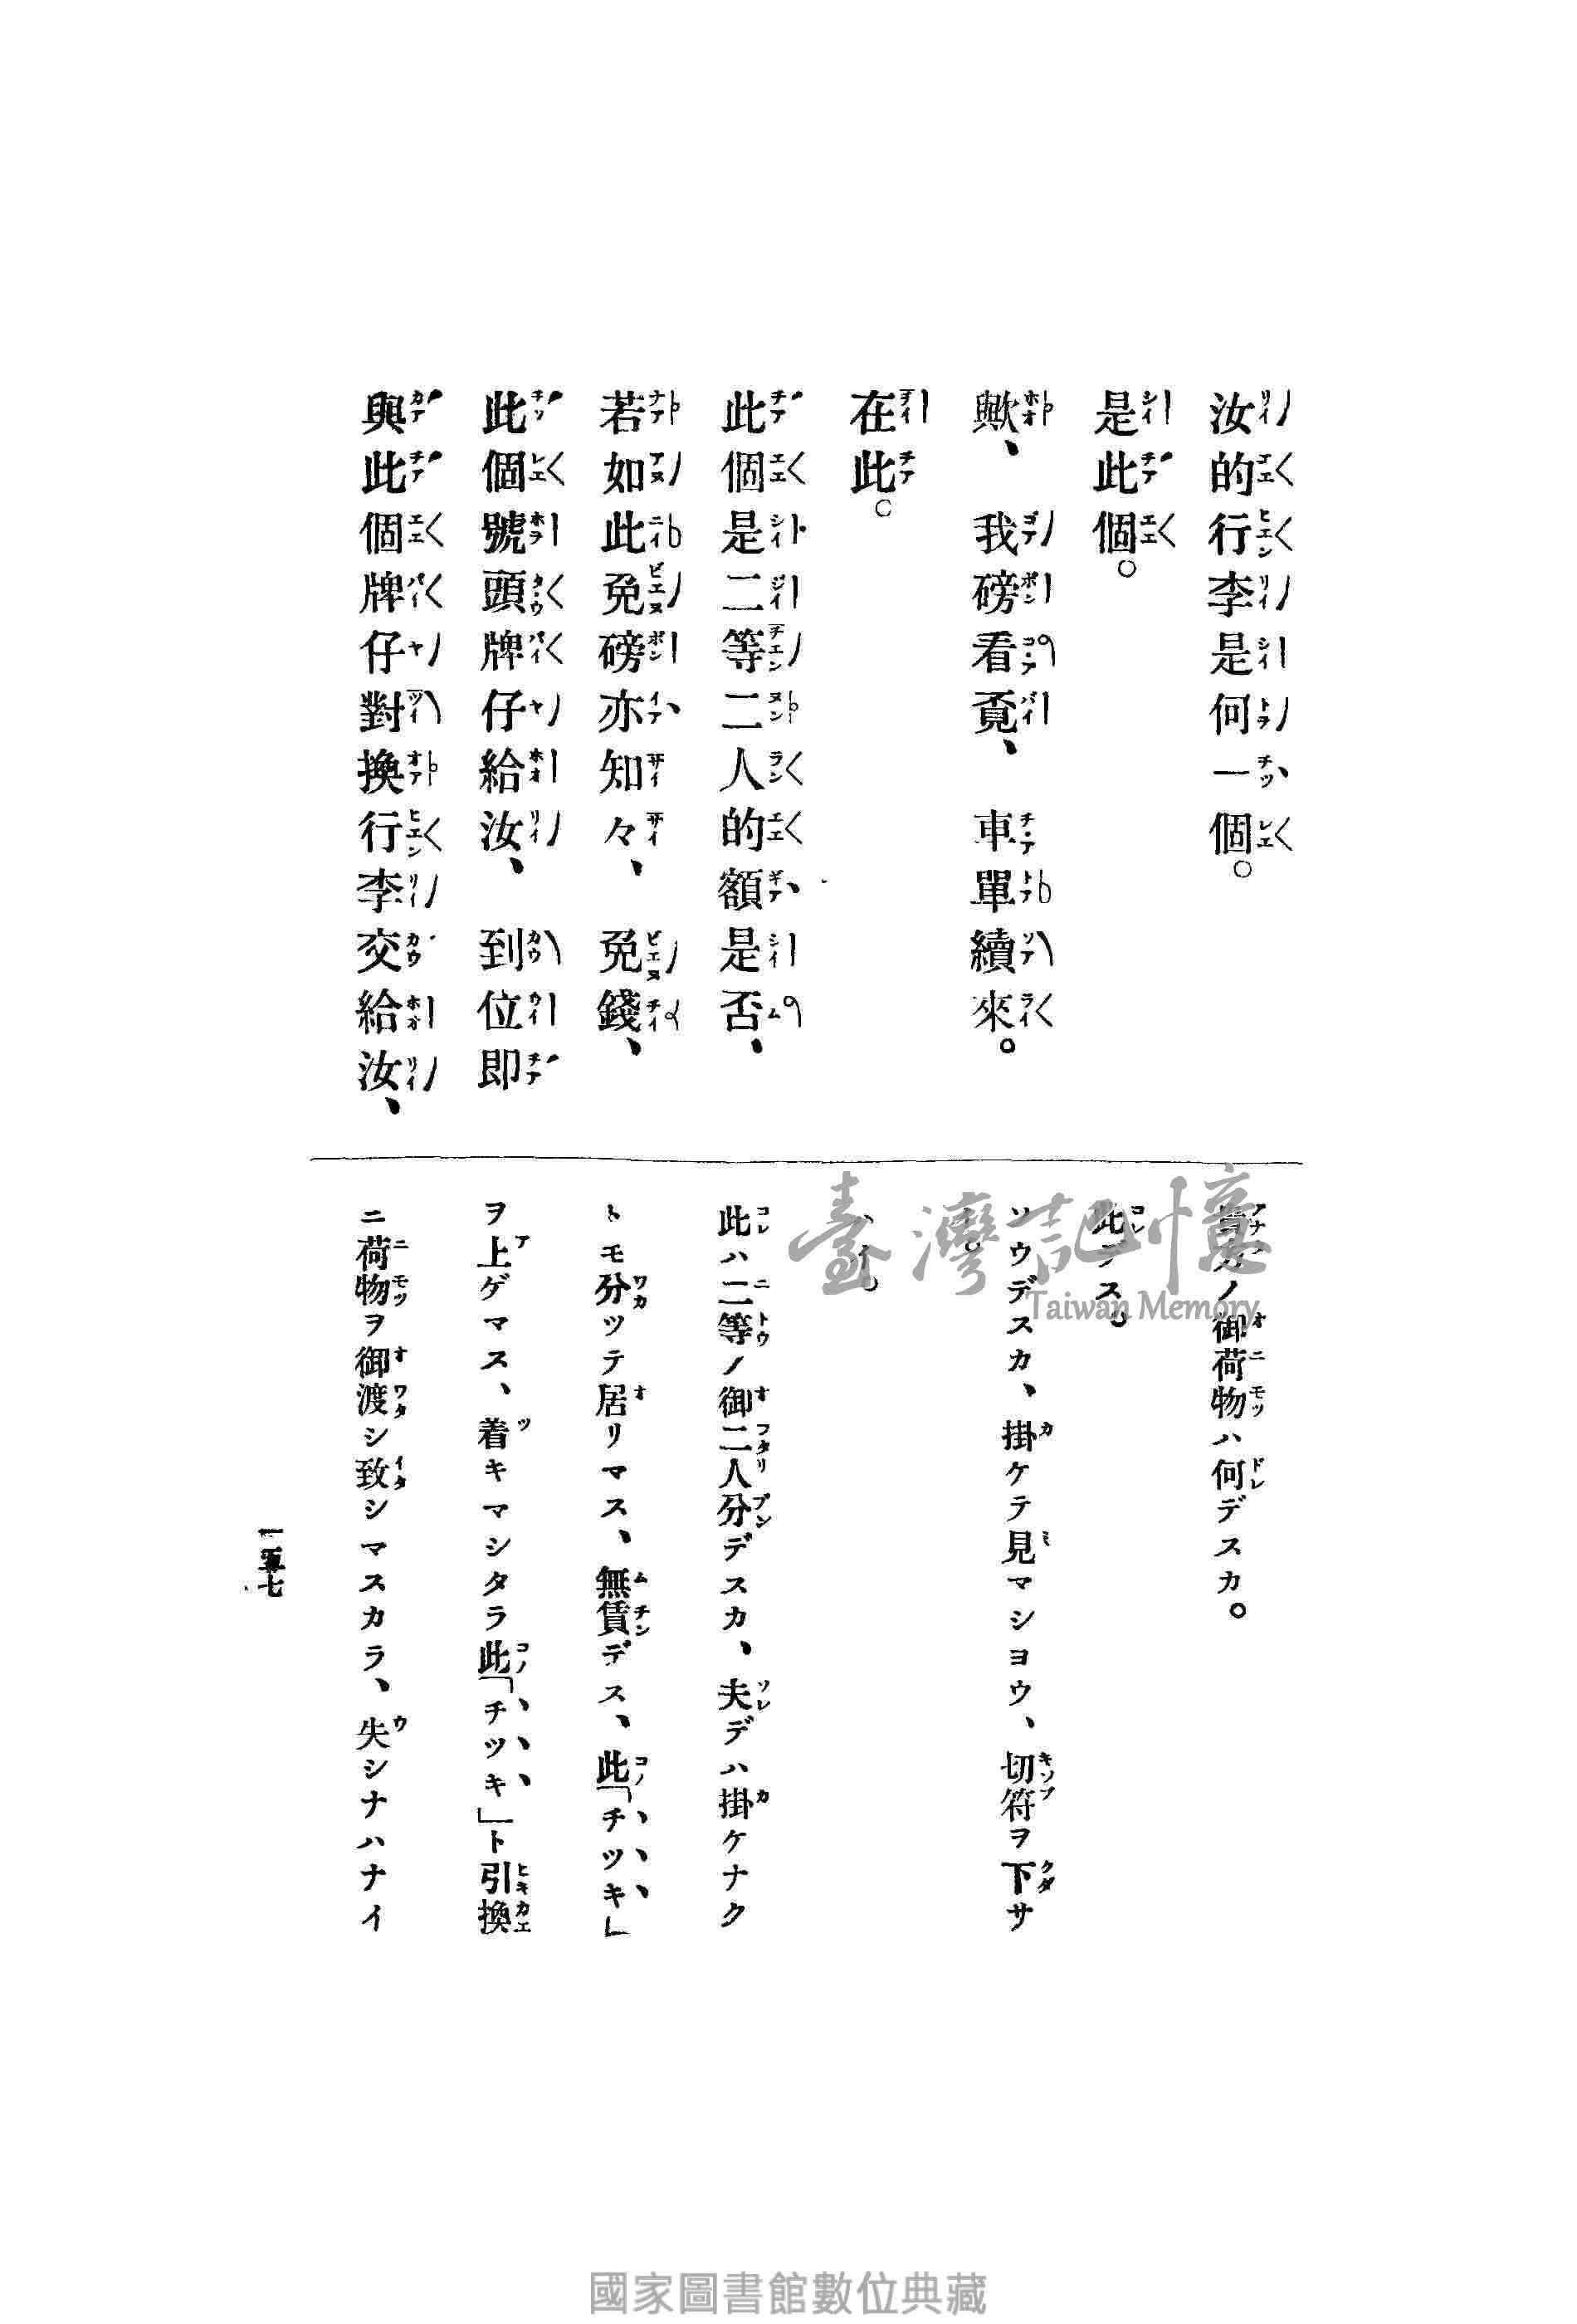 汝的行李是何一個。
是此個。
歟、我磅看覔、車單續來。
在此。
此個是二等二人的額是否、
若如此免磅亦知々、免錢、
此個號頭牌仔給汝、到位即
與此個牌仔對換行李交給汝、
ノ御荷物ハ何デスカ。
此デス。
ソウデスカ、掛ケテ見マシヨウ、切符ヲ下サ
此ハ二等ノ御二人分デスカ、夫デハ掛ケナク
トモ分ツテ居リマス、無賃デス、此「チツキ」
ヲ上ゲマス、着キマシタラ此「チツキ」ト引換
ニ荷物ヲ御渡シ致シマスカラ、失シナハナイ
一五七
臺灣記憶
Taiwan Memory
國家圖書館數位典藏